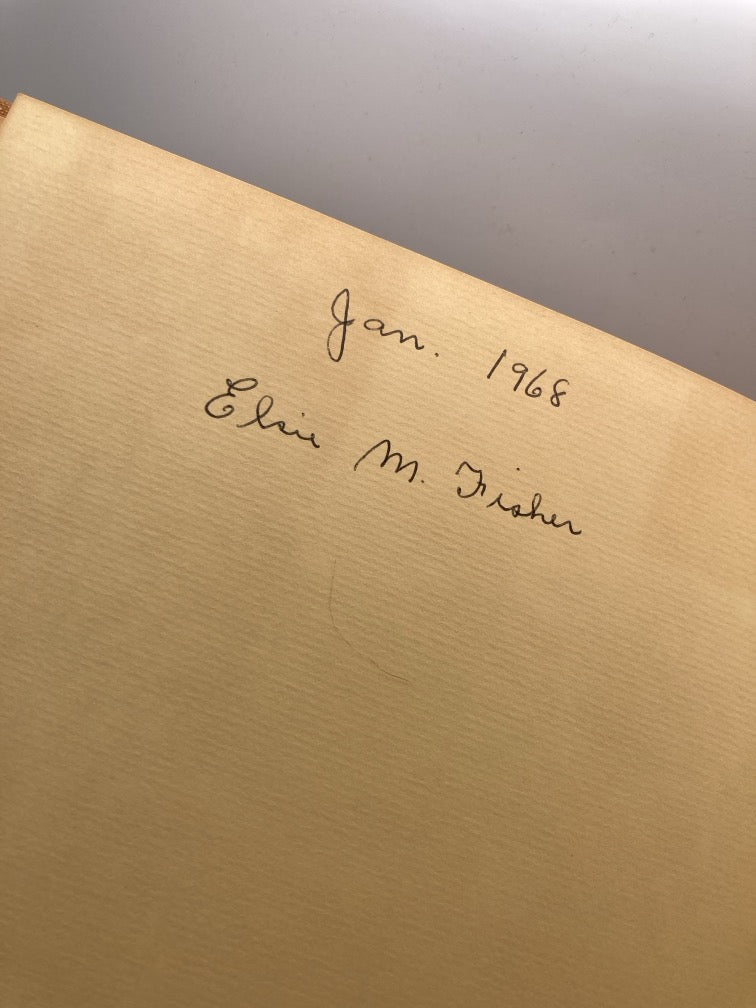 Jan. 1968
Elsie M. Fisher